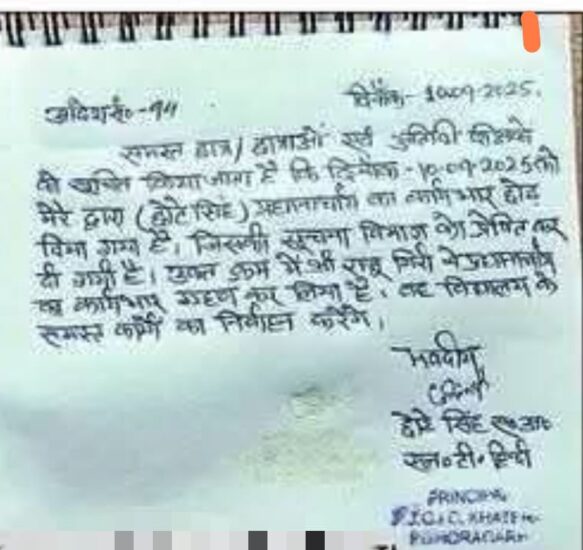 आदेश सं०-14 दिनाँक- 10.09.2025.
समस्त छात्र/छात्राओं एवं
को सूचित किया जाता है कि दिनाँक-10-09-2025 को
मेरे द्वारा (छोटे सिंह) प्रधानाचार्य का कार्यभार छोड़
दिया गया है। जिसकी सूचना विभाग को प्रेषित कर
दी गयी है। उक्त क्रम में श्री राजू गिरी ने प्रधानाचार्य
का कार्यभार ग्रहण कर लिया है। वह विद्यालय के
समस्त कार्यों का निर्वहन करेंगे।
भवदीय
छोटे सिंह स०अ०
एल०टी० हिन्दी
PRINCIPAL
PITHORAGARH